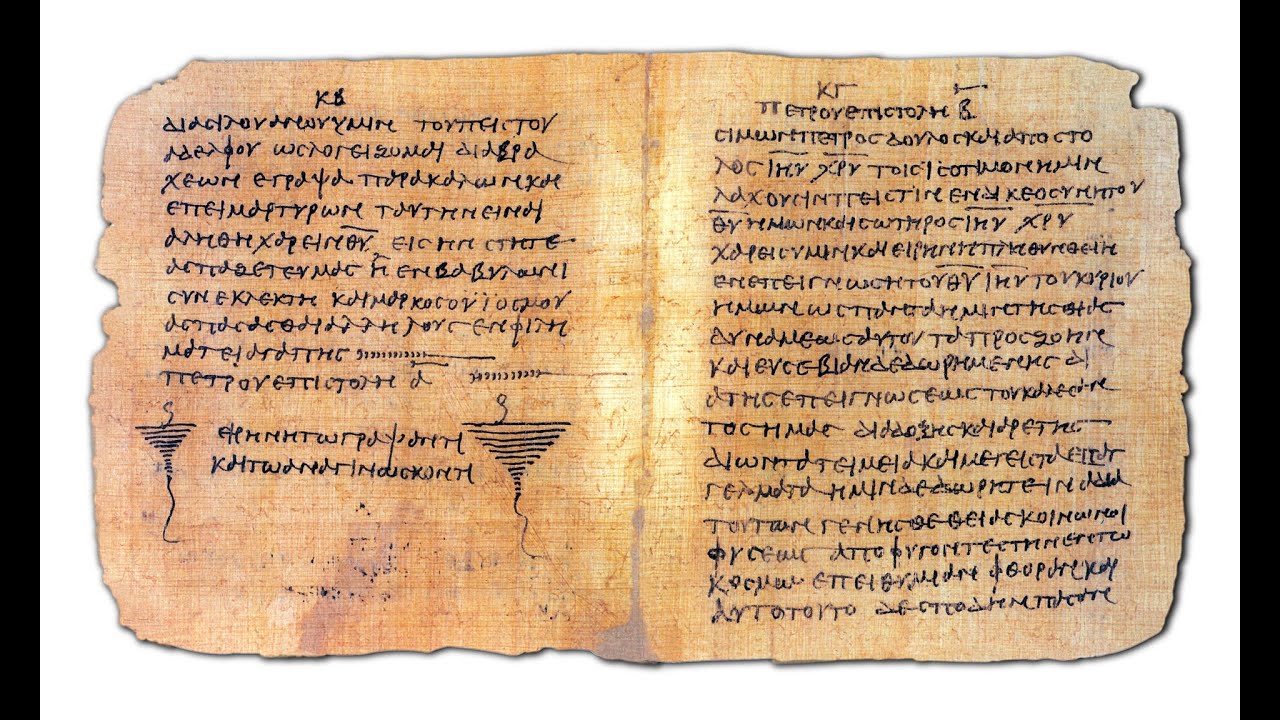 ΚΒ
ΔΙΑϹΙΛΟΥΑΝΟΥΥΜΙΝ ΤΟΥΠΕΙϹΤΟΥ
ΑΔΕΛΦΟΥ ΩϹΛΟΓΕΙΖΟΜΑΙ ΔΙΑΒΡΑ
ΧΕΩΝ ΕΓΡΑΨΑ ΠΑΡΑΚΑΛΩΝΚΑΙ
ΕΠΕΙΜΑΡΤΥΡΩΝ ΤΑΥΤΗΝΕΙΝΑΙ
ΑΛΗΘΗΧΑΡΕΙΝΘ̅Υ̅ ΕΙϹΗΝϹΤΗΤΕ
ΑϹΠΑΖΕΤΕΥΜΑϹ Η ΕΝΒΑΒΥΛΩΝΙ
ϹΥΝΕΚΛΕΚΤΗ ΚΑΙΜΑΡΚΟϹΟΥΙΟϹΜΟΥ
ΑϹΠΑϹΑϹΘΑΙΑΛΛΗΛΟΥϹΕΝΦΙΛΗ
ΜΑΤΕΙΑΓΑΠΗϹ
ΠΕΤΡΟΥΕΠΙϹΤΟΛΗ Α̅
ΕΙΡΗΝΗΤΩΓΡΑΨΑΝΤΙ
ΚΑΙΤΩΑΝΑΓΙΝΩϹΚΟΝΤΙ
ΚΓ
ΠΕΤΡΟΥΕΠΙϹΤΟΛΗ Β̅
ϹΙΜΩΝΠΕΤΡΟϹΔΟΥΛΟϹΚΑΙΑΠΟϹΤΟ
ΛΟϹΙ̅Η̅Υ̅ Χ̅Ρ̅Υ̅ ΤΟΙϹΙϹΟΤΙΜΟΝΗΜΙΝ
ΛΑΧΟΥϹΙΝΠΕΙϹΤΙΝ ΕΝΔΙΚΕΟϹΥΝΗΤΟΥ
Θ̅Υ̅ΗΜΩΝΚΑΙϹΩΤΗΡΟϹΙ̅Η̅Υ̅ Χ̅Ρ̅Υ̅
ΧΑΡΕΙϹΥΜΙΝΚΑΙΕΙΡΗΝΗΠΛΗΘΥΝΘΕΙΗ
ΕΝΕΠΕΙΓΝΩϹΗΤΟΥΘ̅Υ̅Ι̅Η̅Υ̅ΤΟΥΚΥΡΙΟΥ
ΗΜΩΝΩϹΠΑΝΤΑΗΜΙΝΤΗϹΘΙΑϹ
ΔΥΝΑΜΕΩϹΑΥΤΟΥΤΑΠΡΟϹΖΩΗΝ
ΚΑΙΕΥϹΕΒΙΑΝΔΕΔΩΡΗΜΕΝΗϹΔΙ
ΑΤΗϹΕΠΕΙΓΝΩϹΕΩϹΤΟΥΚΑΛΕϹΑΝ
ΤΟϹΗΜΑϹ ΔΙΑΔΟΞΗϹΚΑΙΑΡΕΤΗϹ
ΔΙΩΝΤΑΤΕΙΜΕΙΑΚΑΙΜΕΓΕΙϹΤΑΕΠΑΓ
ΓΕΛΜΑΤΑΗΜΙΝΔΕΔΩΡΗΤΕΙΝΑΔΙΑ
ΤΟΥΤΩΝΓΕΝΗϹΘΕΘΕΙΑϹΚΟΙΝΩΝΟΙ
ΦΥϹΕΩϹ ΑΠΟΦΥΓΟΝΤΕϹΤΗΝΕΝΤΩ
ΚΟϹΜΩ ΕΠΕΙΘΥΜΙΑΝ ΦΘΟΡΑΝΚΑΙ
ΑΥΤΟΤΟΥΤΟ ΔΕϹΠΟΔΗΝΠΑϹΑΝ